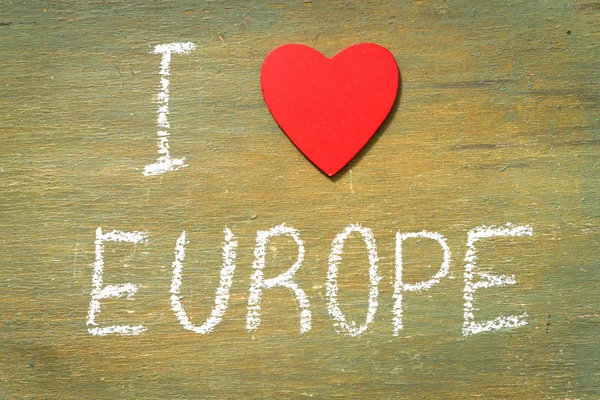 I
EUROPE